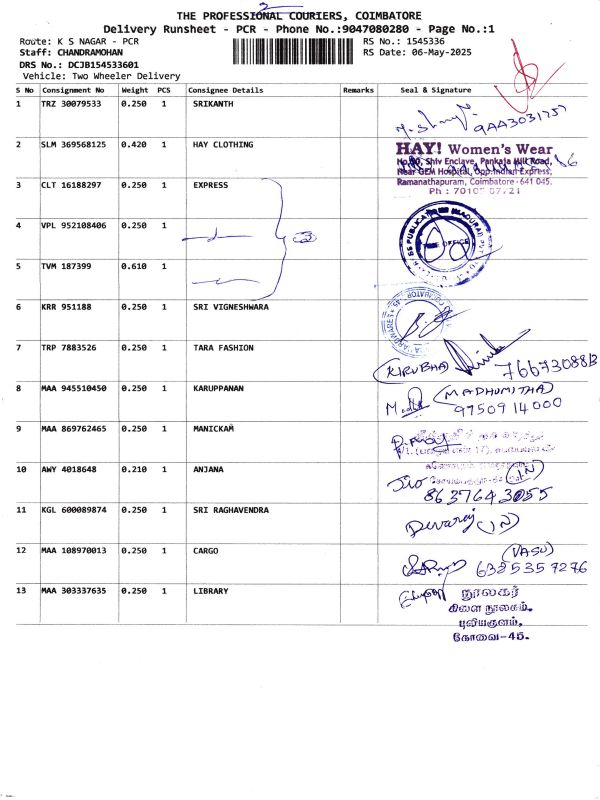 2
THE PROFESSIONAL COURIERS, COIMBATORE
Delivery Runsheet - PCR - Phone No.:9047080280 - Page No.:1
Route: K S NAGAR - PCR RS No.: 1545336
Staff: CHANDRAMOHAN RS Date: 06-May-2025
DRS No.: DCJB154533601
Vehicle: Two Wheeler Delivery
S No Consignment No Weight PCS Consignee Details Remarks Seal & Signature
1 TRZ 30079533 0.250 1 SRIKANTH
2 SLM 369568125 0.420 1 HAY CLOTHING HAY! Women's Wear
No.90, Shiv Enclave, Pankaja Mill Road,
Near GEM Hospital, Opp.Indian Express,
Ramanathapuram, Coimbatore - 641 045.
3 CLT 16188297 0.250 1 EXPRESS
4 VPL 952108406 0.250 1
5 TVM 187399 0.610 1
6 KRR 951188 0.250 1 SRI VIGNESHWARA
7 TRP 7883526 0.250 1 TARA FASHION (KIRUBHA) 7667308813
8 MAA 945510450 0.250 1 KARUPPANAN (MADHUMITHA)
9750914000
9 MAA 869762465 0.250 1 MANICKAM
10 AWY 4018648 0.210 1 ANJANA
8637643055
11 KGL 600089874 0.250 1 SRI RAGHAVENDRA Devaraj
12 MAA 108970013 0.250 1 CARGO (VASU)
6385357276
13 MAA 303337635 0.250 1 LIBRARY நூலகர்
கிளை நூலகம்.
புலியகுளம்,
கோவை-45.